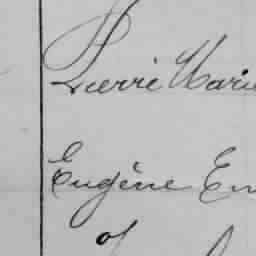 Pierre Marie
Eugène Em
of